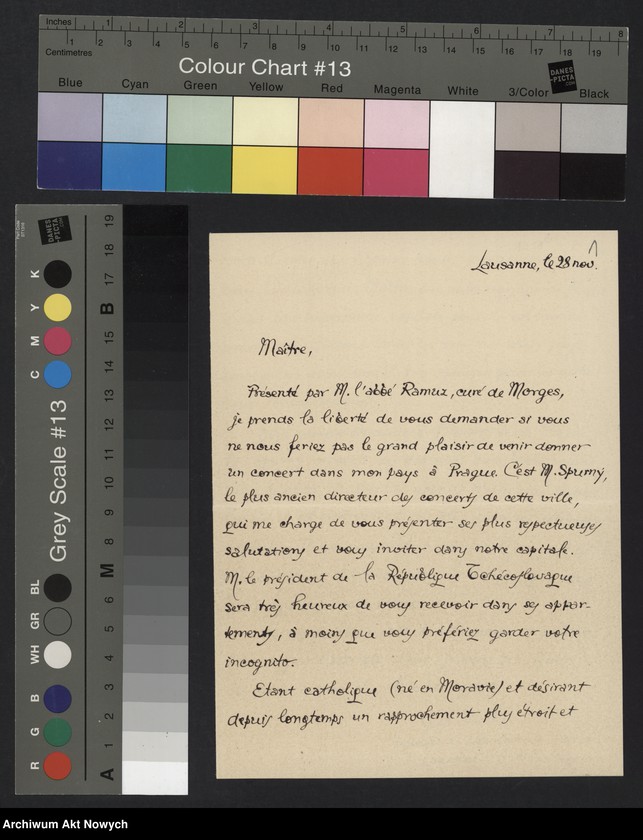 Inches 1 2 3 4 5 6 7 8
Centimetres 1 2 3 4 5 6 7 8 9 10 11 12 13 14 15 16 17 18 19
Colour Chart #13
DANES-PICTA.COM
Blue Cyan Green Yellow Red Magenta White 3/Color Black
Grey Scale #13
DANES-PICTA.COM
R G B WH GR BL C M Y K
A 1 2 3 4 5 6 M 8 9 10 11 12 13 14 15 B 17 18 19
Lausanne, le 28 nov.
Maître,
Présenté par M. l'abbé Ramuz, curé de Morges,
je prends la liberté de vous demander si vous
ne nous feriez pas le grand plaisir de venir donner
un concert dans mon pays à Prague. C'est M. Spurný,
le plus ancien directeur des concerts de cette ville,
qui me charge de vous présenter ses plus respectueuses
salutations et vous inviter dans notre capitale.
M. le président de la République Tchécoslovaque
sera très heureux de vous recevoir dans ses appar-
tements, à moins que vous préfériez garder votre
incognito.
Etant catholique (né en Moravie) et désirant
depuis longtemps un rapprochement plus étroit et
Archiwum Akt Nowych